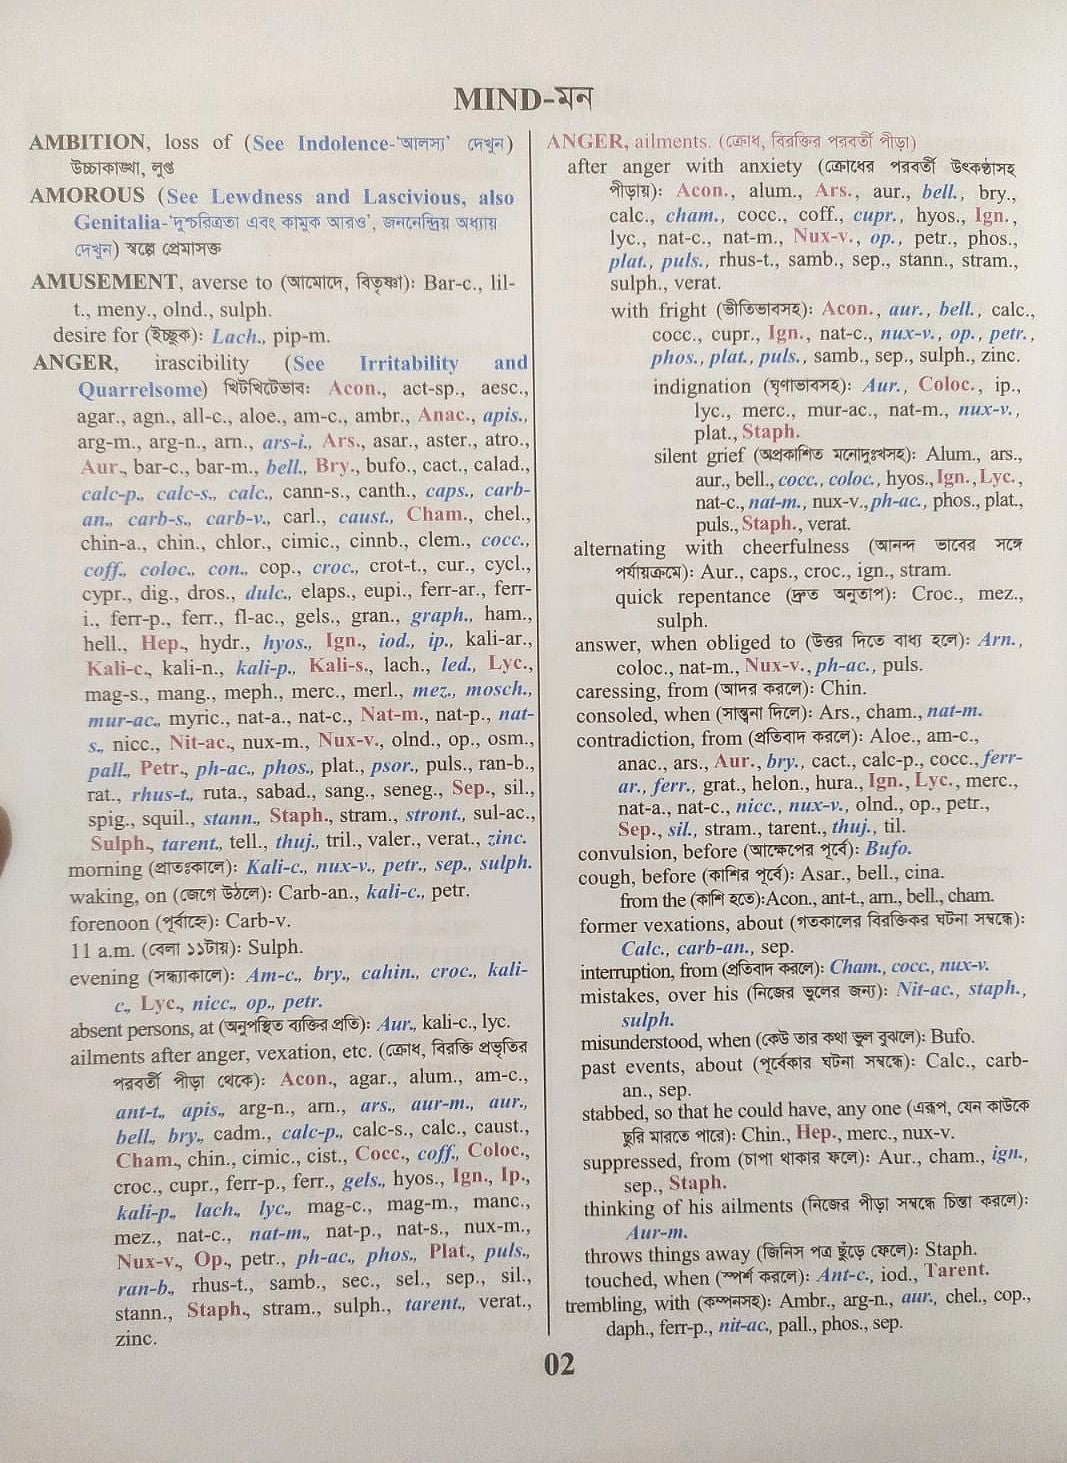 MIND-মন
AMBITION, loss of (See Indolence-‘আলস্য’ দেখুন)
উচ্চাকাঙ্খা, লুপ্ত
AMOROUS (See Lewdness and Lascivious, also
Genitalia-‘দুশ্চরিত্রতা এবং কামুক আরও’, জননেন্দ্রিয় অধ্যায়
দেখুন) স্বল্পে প্রেমাসক্ত
AMUSEMENT, averse to (আমোদে, বিতৃষ্ণা): Bar-c., lil-
t., meny., olnd., sulph.
desire for (ইচ্ছুক): Lach., pip-m.
ANGER, irascibility (See Irritability and
Quarrelsome) খিটখিটেভাব: Acon., act-sp., aesc.,
agar., agn., all-c., aloe., am-c., ambr., Anac., apis.,
arg-m., arg-n., arn., ars-i., Ars., asar., aster., atro.,
Aur., bar-c., bar-m., bell., Bry., bufo., cact., calad.,
calc-p., calc-s., calc., cann-s., canth., caps., carb-
an., carb-s., carb-v., carl., caust., Cham., chel.,
chin-a., chin., chlor., cimic., cinnb., clem., cocc.,
coff., coloc., con., cop., croc., crot-t., cur., cycl.,
cypr., dig., dros., dulc., elaps., eupi., ferr-ar., ferr-
i., ferr-p., ferr., fl-ac., gels., gran., graph., ham.,
hell., Hep., hydr., hyos., Ign., iod., ip., kali-ar.,
Kali-c., kali-n., kali-p., Kali-s., lach., led., Lyc.,
mag-s., mang., meph., merc., merl., mez., mosch.,
mur-ac., myric., nat-a., nat-c., Nat-m., nat-p., nat-
s., nicc., Nit-ac., nux-m., Nux-v., olnd., op., osm.,
pall., Petr., ph-ac., phos., plat., psor., puls., ran-b.,
rat., rhus-t., ruta., sabad., sang., seneg., Sep., sil.,
spig., squil., stann., Staph., stram., stront., sul-ac.,
Sulph., tarent., tell., thuj., tril., valer., verat., zinc.
morning (প্রাতঃকালে): Kali-c., nux-v., petr., sep., sulph.
waking, on (জেগে উঠলে): Carb-an., kali-c., petr.
forenoon (পূর্বাহ্নে): Carb-v.
11 a.m. (বেলা ১১টায়): Sulph.
evening (সন্ধ্যাকালে): Am-c., bry., cahin., croc., kali-
c., Lyc., nicc., op., petr.
absent persons, at (অনুপস্থিত ব্যক্তির প্রতি): Aur., kali-c., lyc.
ailments after anger, vexation, etc. (ক্রোধ, বিরক্তি প্রভৃতির
পরবর্তী পীড়া থেকে): Acon., agar., alum., am-c.,
ant-t., apis., arg-n., arn., ars., aur-m., aur.,
bell., bry., cadm., calc-p., calc-s., calc., caust.,
Cham., chin., cimic., cist., Cocc., coff., Coloc.,
croc., cupr., ferr-p., ferr., gels., hyos., Ign., Ip.,
kali-p., lach., lyc., mag-c., mag-m., manc.,
mez., nat-c., nat-m., nat-p., nat-s., nux-m.,
Nux-v., Op., petr., ph-ac., phos., Plat., puls.,
ran-b., rhus-t., samb., sec., sel., sep., sil.,
stann., Staph., stram., sulph., tarent., verat.,
zinc.
ANGER, ailments. (ক্রোধ, বিরক্তির পরবর্তী পীড়া)
after anger with anxiety (ক্রোধের পরবর্তী উৎকণ্ঠাসহ
পীড়ায়): Acon., alum., Ars., aur., bell., bry.,
calc., cham., cocc., coff., cupr., hyos., Ign.,
lyc., nat-c., nat-m., Nux-v., op., petr., phos.,
plat., puls., rhus-t., samb., sep., stann., stram.,
sulph., verat.
with fright (ভীতিভাবসহ): Acon., aur., bell., calc.,
cocc., cupr., Ign., nat-c., nux-v., op., petr.,
phos., plat., puls., samb., sep., sulph., zinc.
indignation (ঘৃণাভাবসহ): Aur., Coloc., ip.,
lyc., merc., mur-ac., nat-m., nux-v.,
plat., Staph.
silent grief (অপ্রকাশিত মনোদুঃখসহ): Alum., ars.,
aur., bell., cocc., coloc., hyos., Ign., Lyc.,
nat-c., nat-m., nux-v., ph-ac., phos., plat.,
puls., Staph., verat.
alternating with cheerfulness (আনন্দ ভাবের সঙ্গে
পর্যায়ক্রমে): Aur., caps., croc., ign., stram.
quick repentance (দ্রুত অনুতাপ): Croc., mez.,
sulph.
answer, when obliged to (উত্তর দিতে বাধ্য হলে): Arn.,
coloc., nat-m., Nux-v., ph-ac., puls.
caressing, from (আদর করলে): Chin.
consoled, when (সান্ত্বনা দিলে): Ars., cham., nat-m.
contradiction, from (প্রতিবাদ করলে): Aloe., am-c.,
anac., ars., Aur., bry., cact., calc-p., cocc., ferr-
ar., ferr., grat., helon., hura., Ign., Lyc., merc.,
nat-a., nat-c., nicc., nux-v., olnd., op., petr.,
Sep., sil., stram., tarent., thuj., til.
convulsion, before (আক্ষেপের পূর্বে): Bufo.
cough, before (কাশির পূর্বে): Asar., bell., cina.
from the (কাশি হতে): Acon., ant-t., arn., bell., cham.
former vexations, about (গতকালের বিরক্তিকর ঘটনা সম্বন্ধে):
Calc., carb-an., sep.
interruption, from (প্রতিবাদ করলে): Cham., cocc., nux-v.
mistakes, over his (নিজের ভুলের জন্য): Nit-ac., staph.,
sulph.
misunderstood, when (কেউ তার কথা ভুল বুঝলে): Bufo.
past events, about (পূর্বেকার ঘটনা সম্বন্ধে): Calc., carb-
an., sep.
stabbed, so that he could have, any one (এরূপ, যেন কাউকে
ছুরি মারতে পারে): Chin., Hep., merc., nux-v.
suppressed, from (চাপা থাকার ফলে): Aur., cham., ign.,
sep., Staph.
thinking of his ailments (নিজের পীড়া সম্বন্ধে চিন্তা করলে):
Aur-m.
throws things away (জিনিস পত্র ছুঁড়ে ফেলে): Staph.
touched, when (স্পর্শ করলে): Ant-c., iod., Tarent.
trembling, with (কম্পনসহ): Ambr., arg-n., aur., chel., cop.,
daph., ferr-p., nit-ac., pall., phos., sep.
02